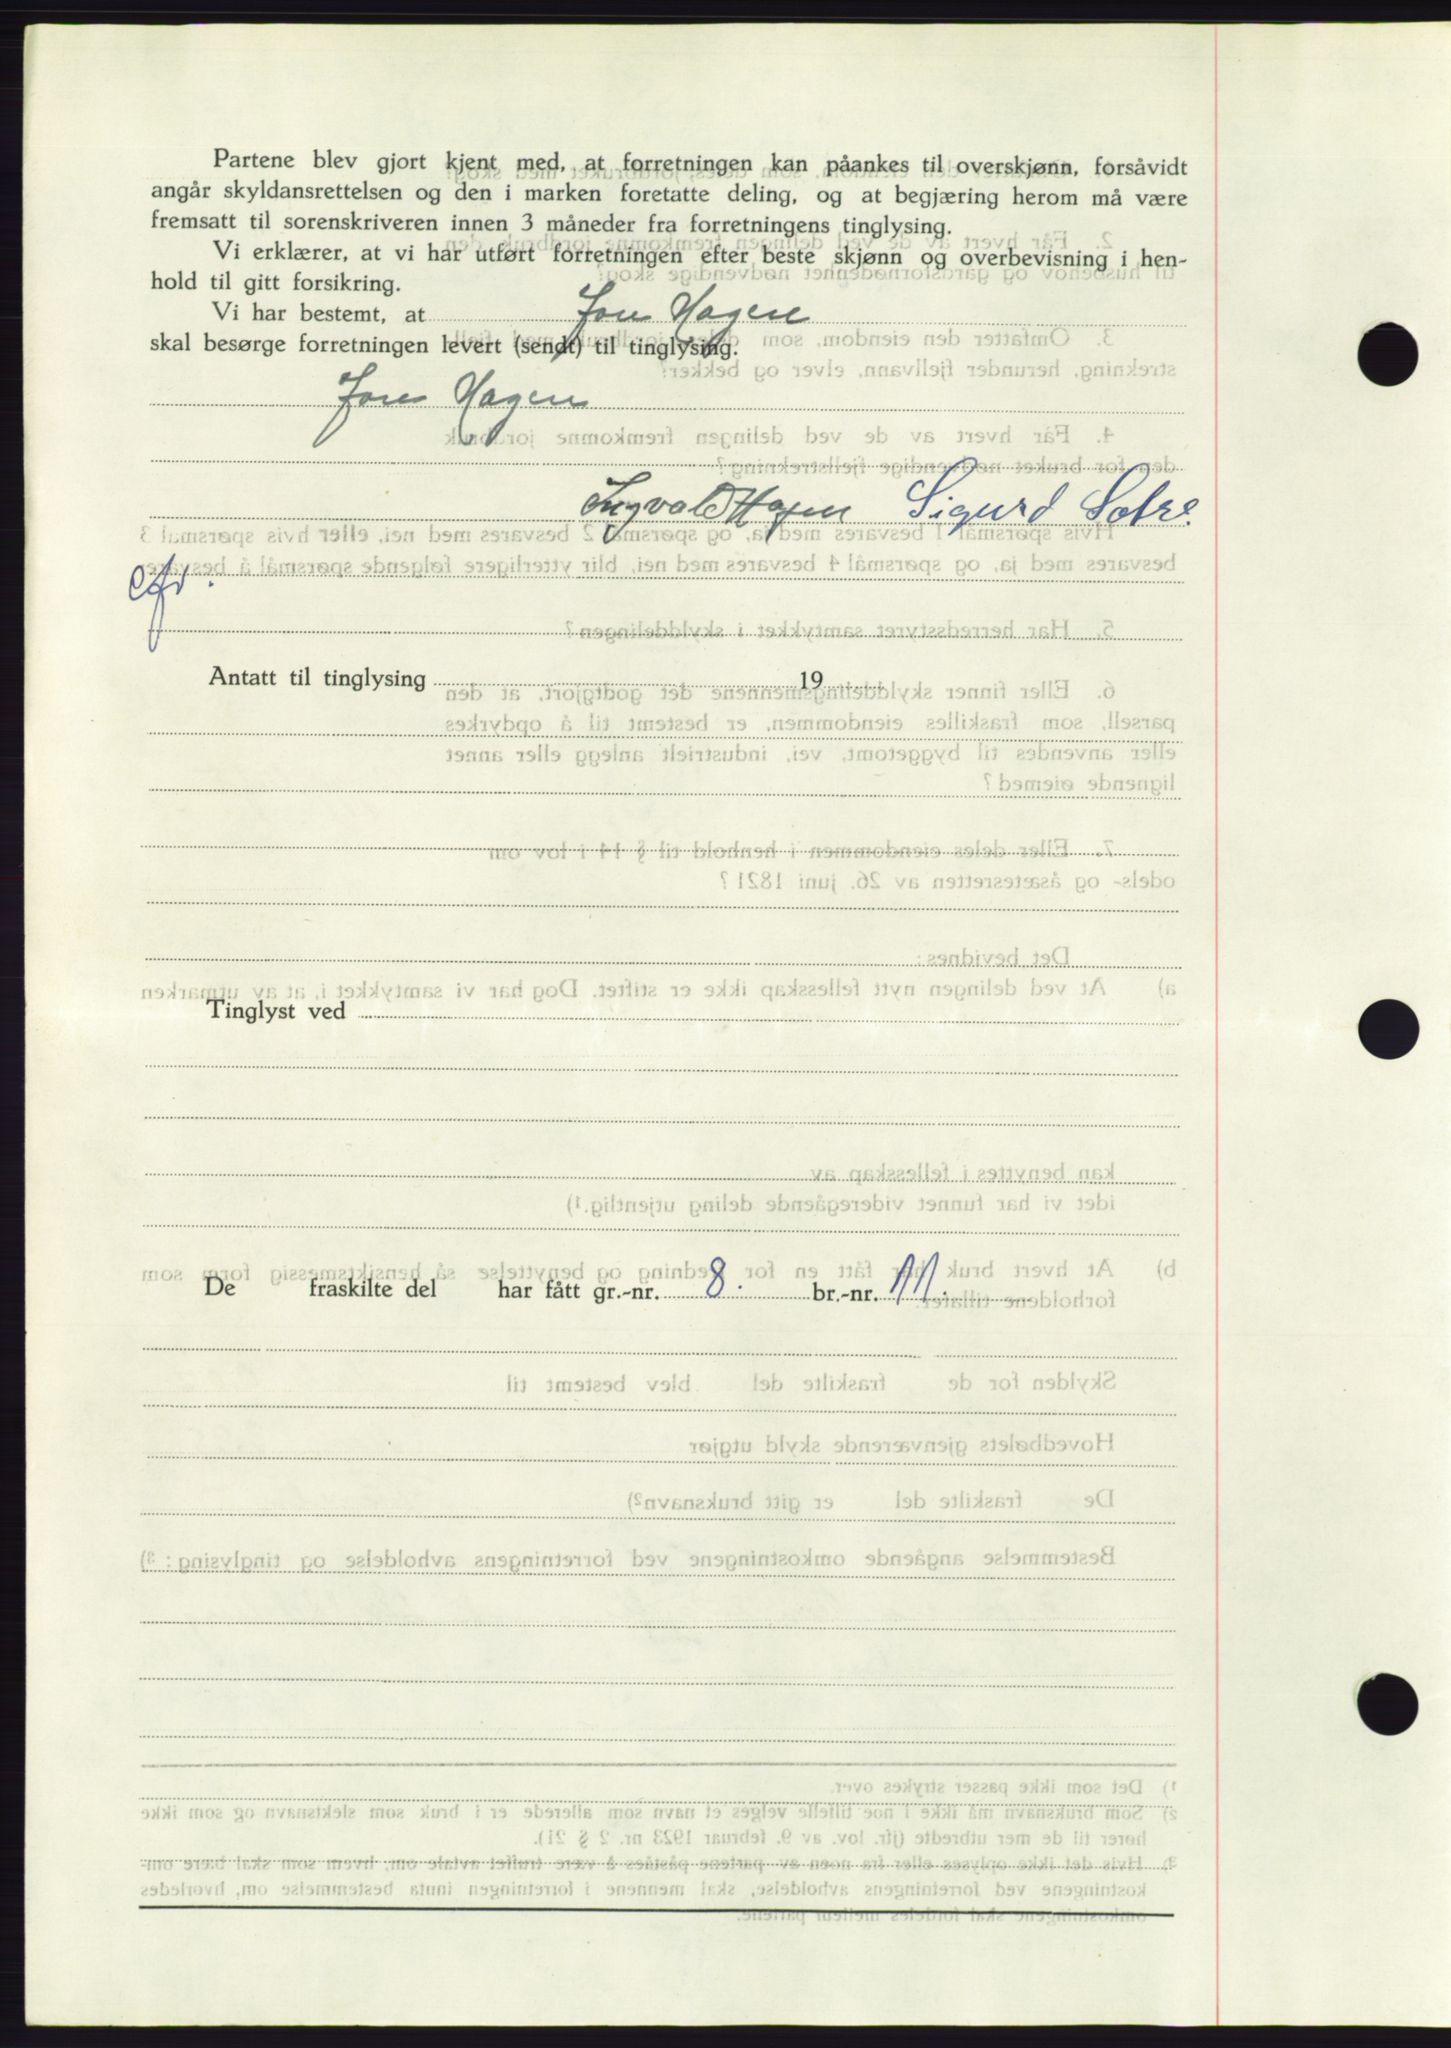 Partene blev gjort kjent med, at forretningen kan påankes til overskjønn, forsåvidt
angår skyldansrettelsen og den i marken foretatte deling, og at begjæring herom må være
fremsatt til sorenskriveren innen 3 måneder fra forretningens tinglysing.
Vi erklærer, at vi har utført forretningen efter beste skjønn og overbevisning i hen-
hold til gitt forsikring.
Vi har bestemt, at Jon Hagen
skal besørge forretningen levert (sendt) til tinglysing.
Jon Hagen
Ingvald Hagen Sigurd
Antatt til tinglysing 19
Tinglyst ved
De fraskilte del har fått gr.-nr. 8. br.-nr. 111.